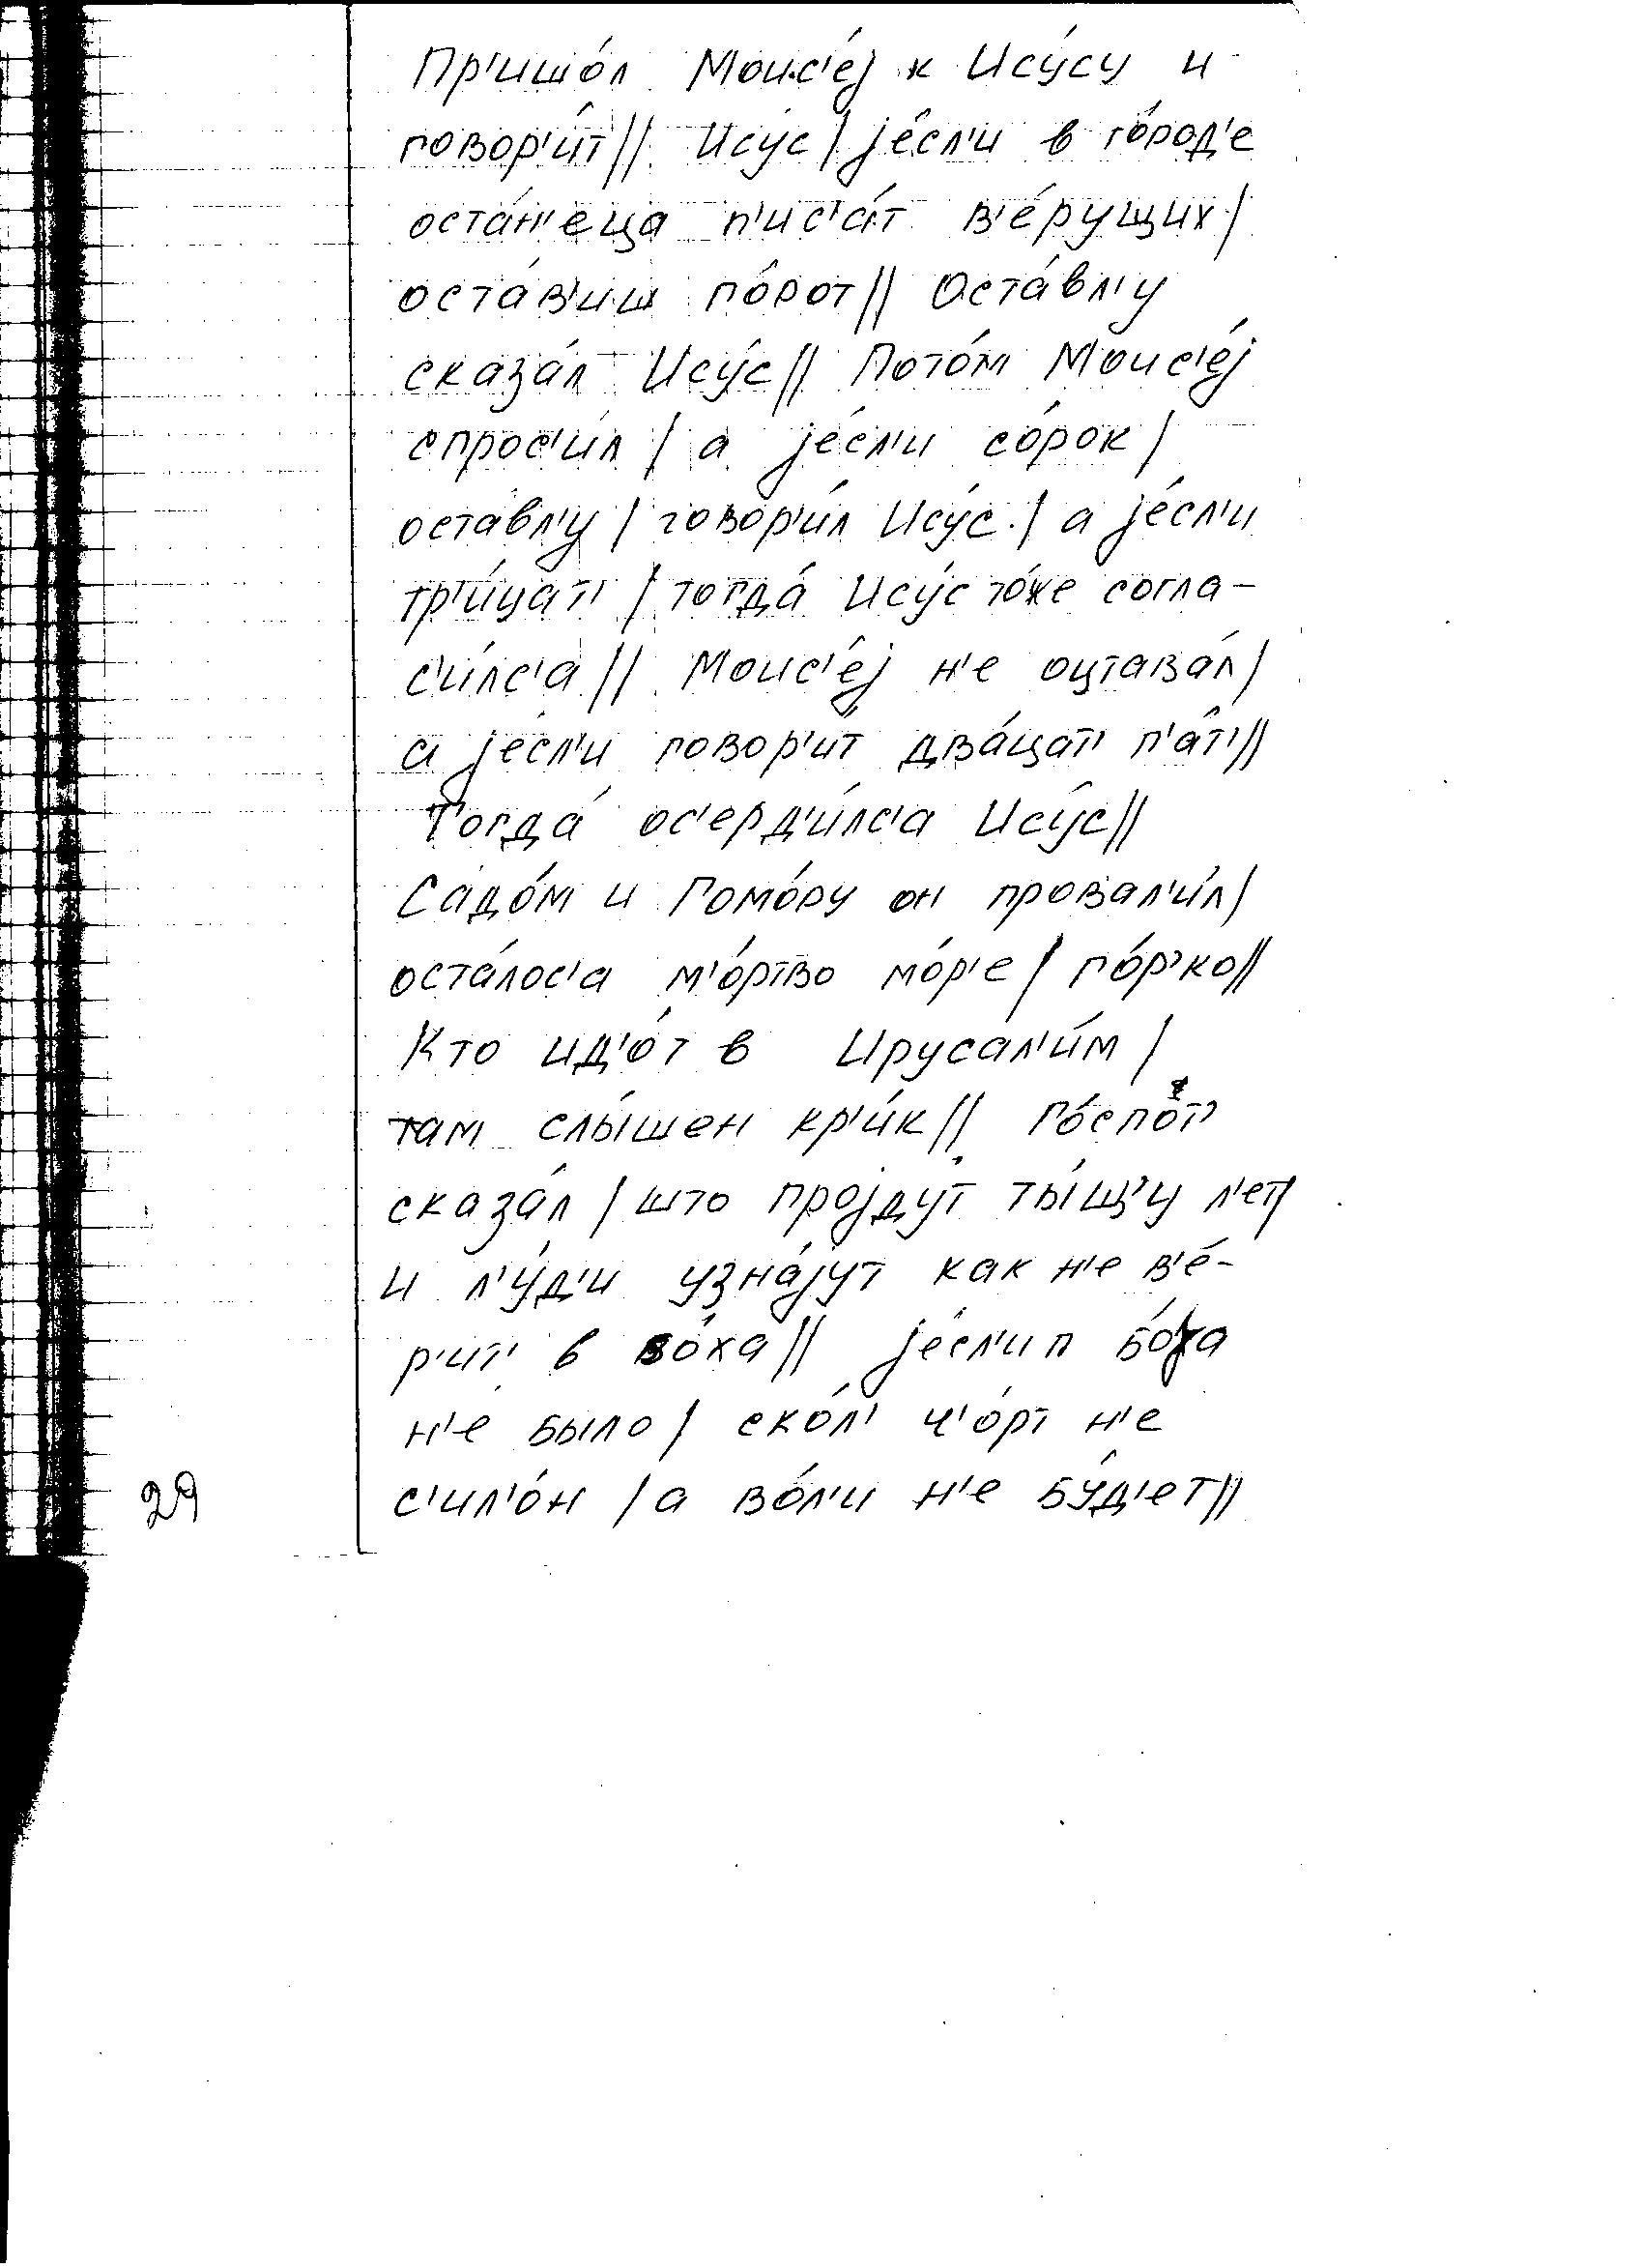 Пр'ишо́л Моис'е́j к Ису́су и
говор'и́т// Ису́с/ jе́сл'и в го́род'е
оста́н'еца п'ис'а́т в'е́рущих/
оста́в'иш го́рот// Оста́вл'у
сказа́л Ису́с// Пото́м Моис'е́j
спрос'и́л / а jе́сл'и со́рок /
оста́вл'у / говор'и́л Ису́с./ а jе́сл'и
тр'и́цат' / тогда́ Ису́с то́же согла-
с'и́лс'а // Моис'е́j н'е оцтава́л/
а jе́сл'и говор'и́т два́цат' п'а́т'//
Тогда́ ос'ерд'и́лс'а Ису́с//
Садо́м и Гомо́ру он провал'и́л/
оста́лос'а м'о́ртво мо́р'е / го́р'ко//
Кто ид'о́т в Ирусал'и́м /
там слы́шен кр'и́к// Го́спот'
сказа́л / што проjду́т ты́щ'у л'ет/
и л'у́д'и узна́jут как н'е в'е́-
р'ит' в Бо́ха// jе́сл'ип Бо́ха
н'е́ было / скол' ч'о́рт н'е
с'ил'о́н / а во́л'и н'е бу́д'ет//
29